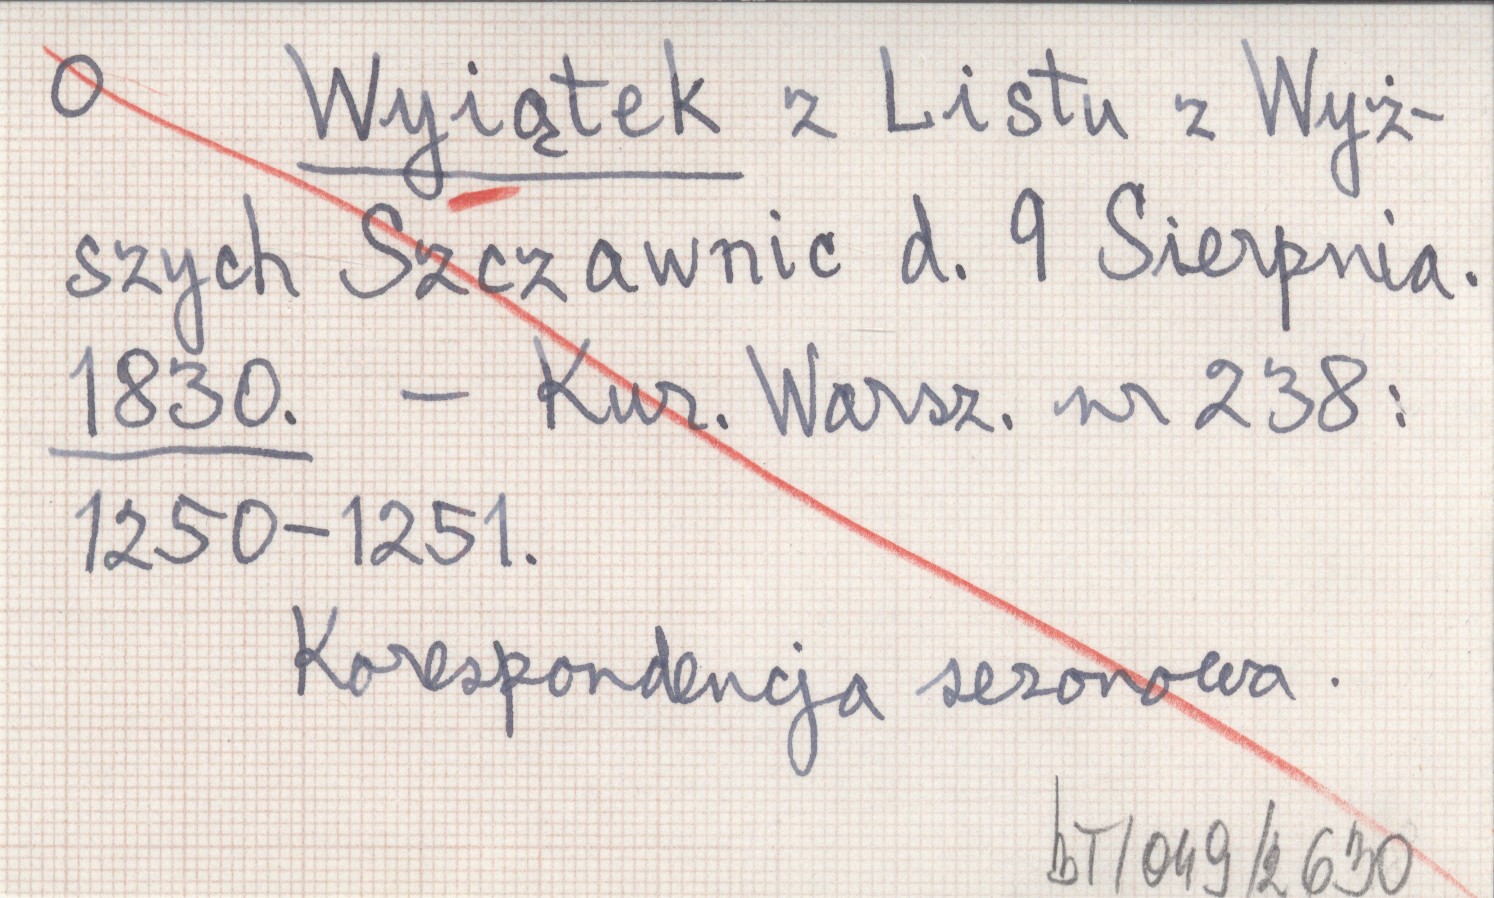 O Wyiątek z Listu z Wyż-
szych Szczawnic d. 9 Sierpnia.
1830. – Kur. Warsz. nr 238:
1250–1251.
Korespondencja sezonowa.
bT/049/2630